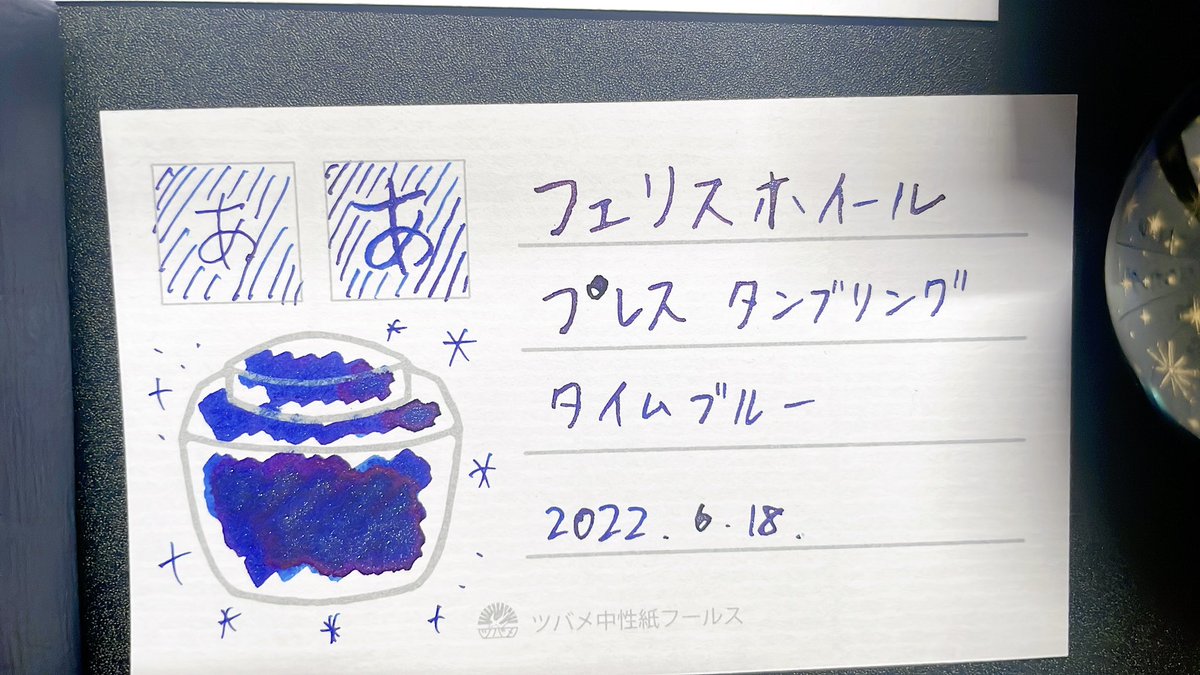 あ あ
フェリスホイール
プレス タンブリング
タイムブルー
2022. 6. 18.
ツバメ ツバメ中性紙フールス